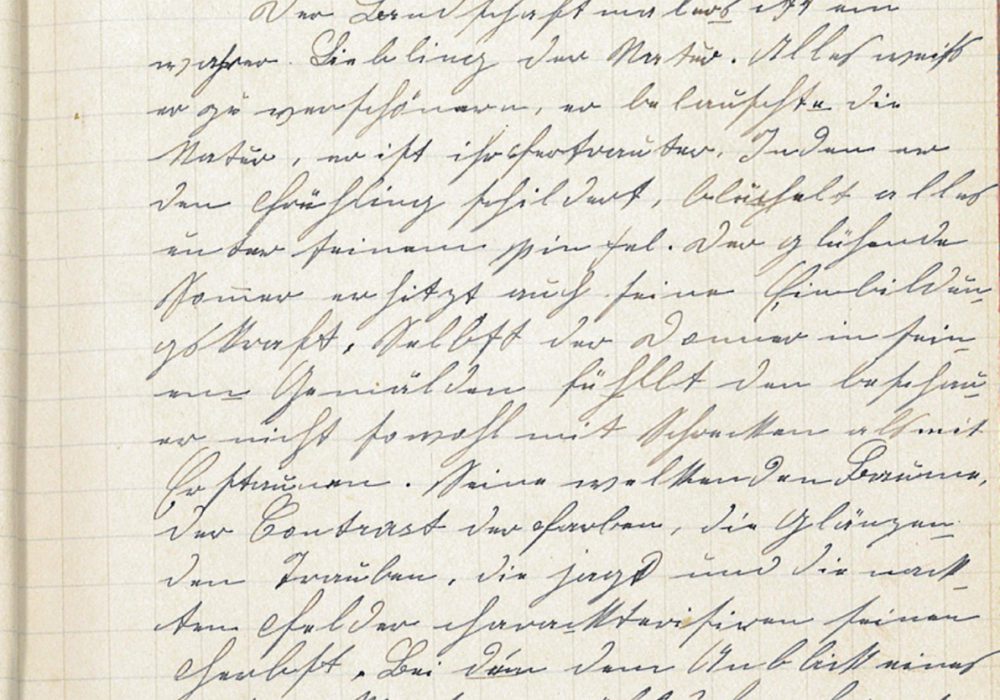 Der Landschaftmalers ist ein
wahrer Liebling der Natur. Alles weiß
er zu verschönern, er belauschte die
Natur, er ist ihr Vertrauter. Indem er
den Frühling schildert, lächelt alles
unter seinem Pinsel. Der glühende
Sommer erhitzt auch seine Einbildun-
gskraft, Selbst der Donner in sein-
em Gemälden fühllt den beschau-
er nicht sowohl mit Schrecken als mit
Erstaunen. Seine welkenden Bäume,
der Contrast der Farben, die Glänzen-
den Trauben, die jagd und die nack-
ten Felder charackterisiren seinen
Herbst. Bei dem Anblick eines